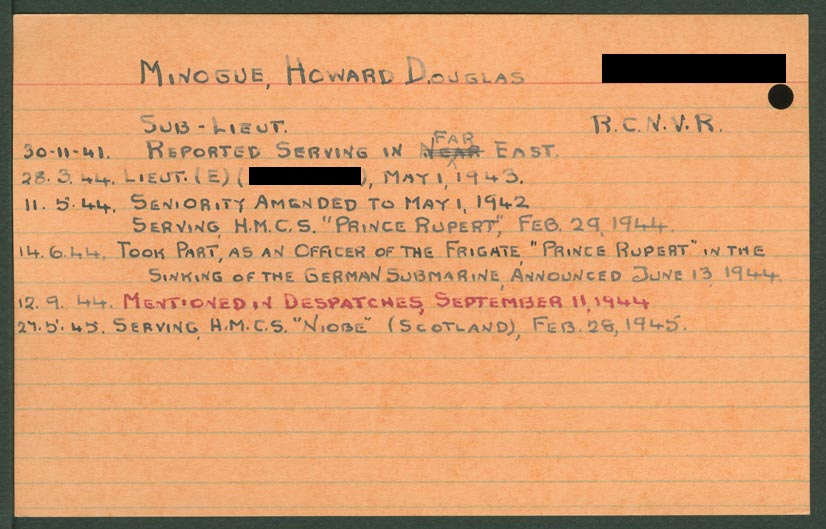 MINOGUE, HOWARD DOUGLAS
SUB-LIEUT. R.C.N.V.R.
30-11-41. REPORTED SERVING IN NEAR FAR EAST.
28.3.44. LIEUT. (E) ( ), MAY 1, 1943.
11.5.44. SENIORITY AMENDED TO MAY 1, 1942
SERVING, H.M.C.S. "PRINCE RUPERT", FEB. 29, 1944.
14.6.44. TOOK PART, AS AN OFFICER OF THE FRIGATE, "PRINCE RUPERT" IN THE
SINKING OF THE GERMAN SUBMARINE, ANNOUNCED JUNE 13, 1944.
12.9.44. MENTIONED IN DESPATCHES, SEPTEMBER 11, 1944
27.5.45. SERVING, H.M.C.S. "NIOBE" (SCOTLAND), FEB. 28, 1945.